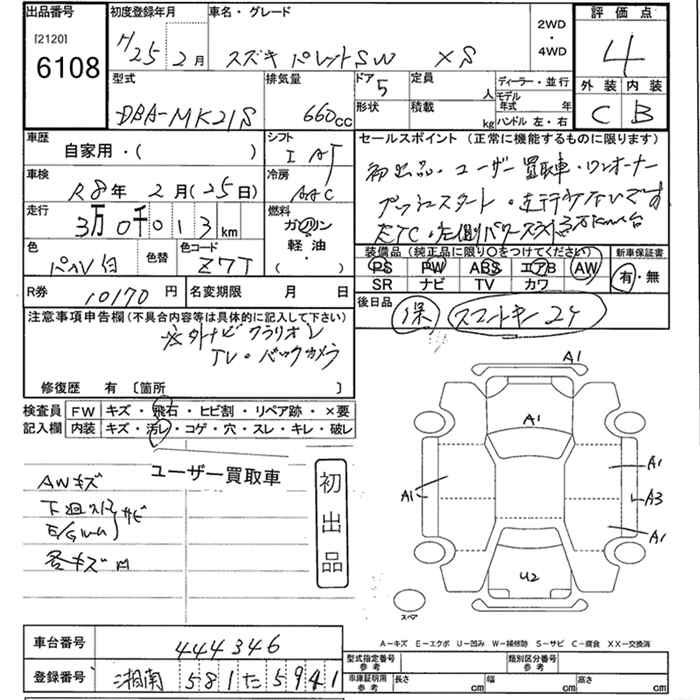 出品番号 初度登録年月 車名・グレード 2WD・4WD 評価点
[2120]
6108
H25 2月 スズキ パレットSW XS 4
型式 排気量 ドア 定員 ディーラー・並行 外装 内装
DBA-MK21S 660cc 5 人 モデル年式 年 C B
形状 積載 kg ハンドル 左・右
車歴 シフト セールスポイント (正常に機能するものに限ります)
自家用・( ) IAT
初出品・ユーザー買取車・ワンオーナー
車検 冷房
R8年2月(25日) AAC
プッシュスタート・走行少ないです
走行 燃料
3万0千013km ガソリン
軽油・
( )
ETC・左側パワースライド
色 色替 色コード
パール白 Z7T
装備品 (純正品に限り○をつけてください) 新車保証書
PS PW ABS エアB AW 有・無
SR ナビ TV カワ
R券 10170円 名変期限 月 日
後日品 保 スマートキー2ケ
注意事項申告欄(不具合内容等は具体的に記入して下さい)
社外ナビ クラリオン
TV・バックカメラ
修復歴 有 〔箇所 〕
検査員 FW キズ・飛石・ヒビ割・リペア跡・×要
記入欄 内装 キズ・汚レ・コゲ・穴・スレ・キレ・破レ
ユーザー買取車
初出品
AWキズ
サビ
各キズ
A1
A1
A1
A1
A3
A1
U2
スペア
A-キズ E-エクボ U-凹み W-補修跡 S-サビ C-腐食 XX-交換済
車台番号 444346
登録番号 湘南 581 た 5941
型式指定番号 参考 類別区分番号 参考
車庫証明用 参考 長さ cm 幅 cm 高さ cm